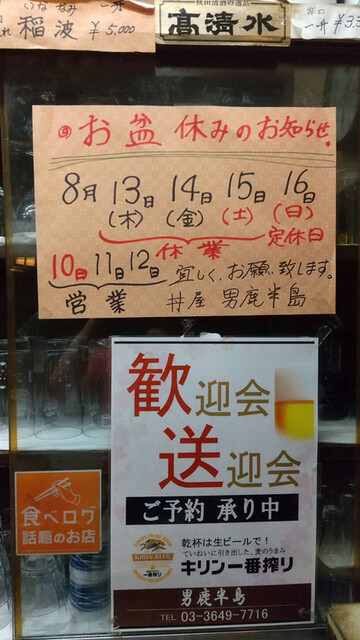 いな なみ 一升
稲波 ¥5,000
秋田清酒の逸品
高清水
辛口
一升 ¥3,5
お盆休みのお知らせ。
8月 13日 14日 15日 16日
(木) (金) (土) (日)
休業 定休日
10日 11日 12日 宜しく、お願い致します。
営業 丼屋 男鹿半島
歓迎会
送迎会
ご予約 承り中
KIRIN BEER
一番搾り
乾杯は生ビールで!
ていねいに引き出した、麦のうまみ
キリン一番搾り
男鹿半島
TEL 03-3649-7716
食べログ
話題のお店